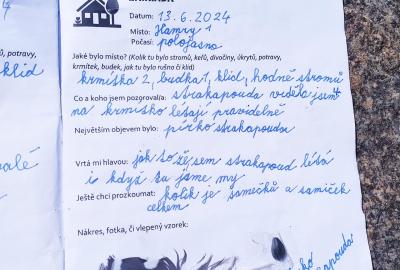 Datum: 13.6.2024
potravy, Místo: Hamry 1
Počasí: polojasno
Jaké bylo místo? (Kolik tu bylo stromů, keřů, divočiny, úkrytů, potravy,
krmítek, budek, jak tu bylo rušno či klid)
klid
krmítka 2, budka 1, klid, hodně stromů
Co a koho jsem pozoroval/a: strakapouda viděla jsem 4
na krmítko létají pravidelně
Největším objevem bylo: pírko strakapouda
Vrtá mi hlavou: jak to že, sem strakapoud létá
i když tu jsme my
Ještě chci prozkoumat: kolik je samečků a samiček
celkem
Nákres, fotka, či vlepený vzorek:
strakapouda